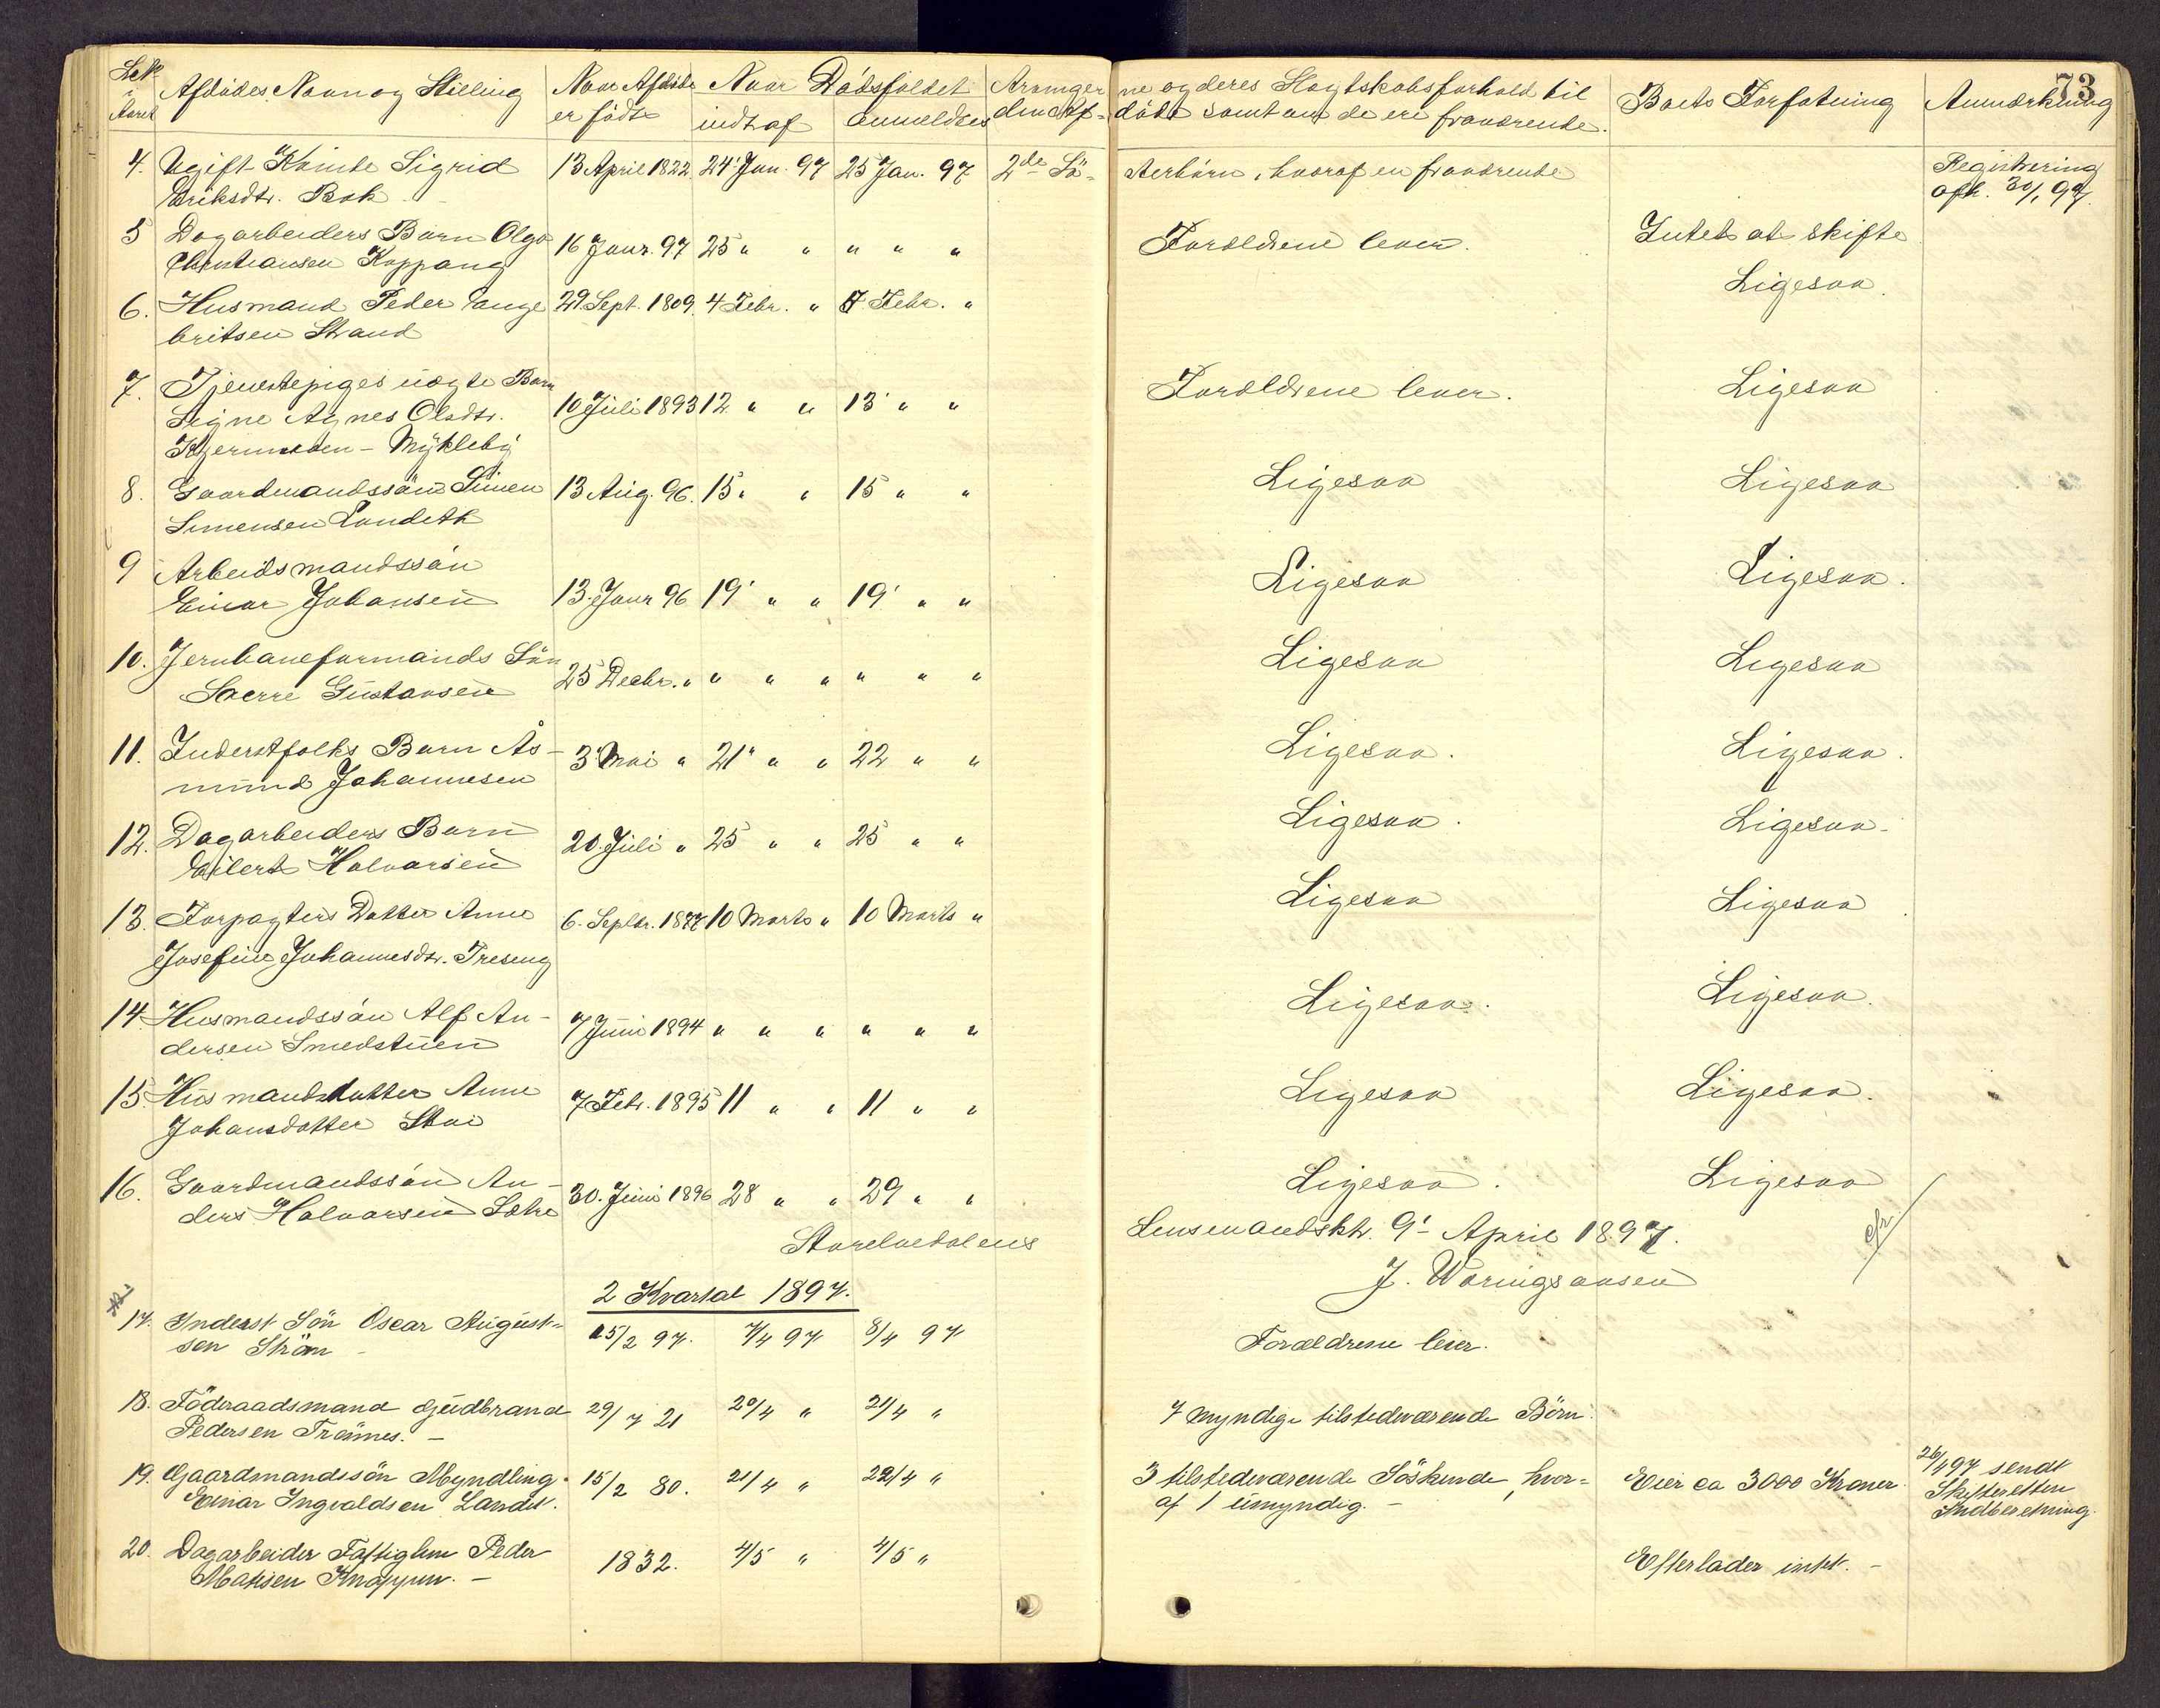 73
Lø№ i Aaret | Afdødes Navn og Stilling | Naar Afdøde er født | Naar Dødsfaldet indtraf | anmeldtes | Arvingerne og deres Slægtskabsforhold til den Afdøde samt om de ere fraværende. | Boets Forfatning | Anmærkning
4. Ugift Kvinde Sigrid | 13 April 1822 | 24' Jan. 97 | 25 Jan. 97 | 2de Sø-sterbørn, hvoraf en fraværende | Registrering
Eriksdtr. Bok | afh. 30/1 97.
5 Dagarbeiders Barn Olga | 16 Janr. 97 | 25 " " | " " " | Forældrene lever. | Intet at skifte
Christiansen Koppang
6. Husmand Peder Enge | 29. Sept. 1809. | 4 Febr. " | 7 Febr. " | Ligesaa.
britsen Strand
7. Tjenestepiges uægte Barn
Signe Agnes Olsdtr. | 10 Juli 1893 | 12 " " | 13 " " | Forældrene lever. | Ligesaa
Mykleby
8. Gaardmandssøn Simen | 13 Aug. 96. | 15 " " | 15 " " | Ligesaa | Ligesaa
Simensen Landeth
9 Arbeidsmandssøn
Einar Johansen | 13. Janr 96 | 19' " " | 19' " " | Ligesaa | Ligesaa.
10. Jernbaneformands Søn
Sverre Gustavsen | 25 Decbr. " | " " " | " " " | Ligesaa | Ligesaa
11. Inderstfolks Barn Ås-
mund Johannesen | 3' Mai " | 21" " " | 22 " " | Ligesaa. | Ligesaa.
12. Dagarbeiders Barn
Eilert Halvarsen | 20. Juli " | 25 " " | 25 " " | Ligesaa. | Ligesaa.
13. Forpagters Datter Anne | 6. Septbr. 1877 | 10 Marts " | 10 Marts " | Ligesaa | Ligesaa
Josefine Johannesdtr. Treseng
14 Husmandssøn Alf An-
dersen Smedstuen | 7 Juni 1894 | " " " | " " " | Ligesaa. | Ligesaa.
15. Husmandsdatter Anne | 7 Febr. 1895 | 11 " " | 11 " " | Ligesaa | Ligesaa.
Johansdatter Stai
16. Gaardmandssøn An-
ders Halvarsen Sætre | 30. Juni 1896 | 28 " " | 29 " " | Ligesaa. | Ligesaa
Storelvedalens Lensmandsktr. 9' April 1897.
J. Waringsaasen
2 Kvartal 1897.
17. Inderst Søn Oscar August-
sen Strøm | 15/2 97. | 7/4 97 | 8/4 97 | Forældrene lever.
18. Føderaadsmand Gudbrand | 29/7 21 | 20/4 " | 21/4 " | 7 myndige tilstedeværende Børn.
Pedersen Trønnes. -
19. Gaardmandssøn Myndling | 15/2 80. | 21/4 " | 22/4 " | 3 tilstedeværende Søskende, hvor- | Eier ca 3000 Kroner. | 26/4 97 sendt
Einar Ingvaldsen Landet. | af 1 umyndig. - | Skifteretten
Indberetning.
20. Dagarbeider Fattiglem Peder | 1832. | 4/5 " | 4/5 " | Efterlader intet. -
Matisen Knappen. -